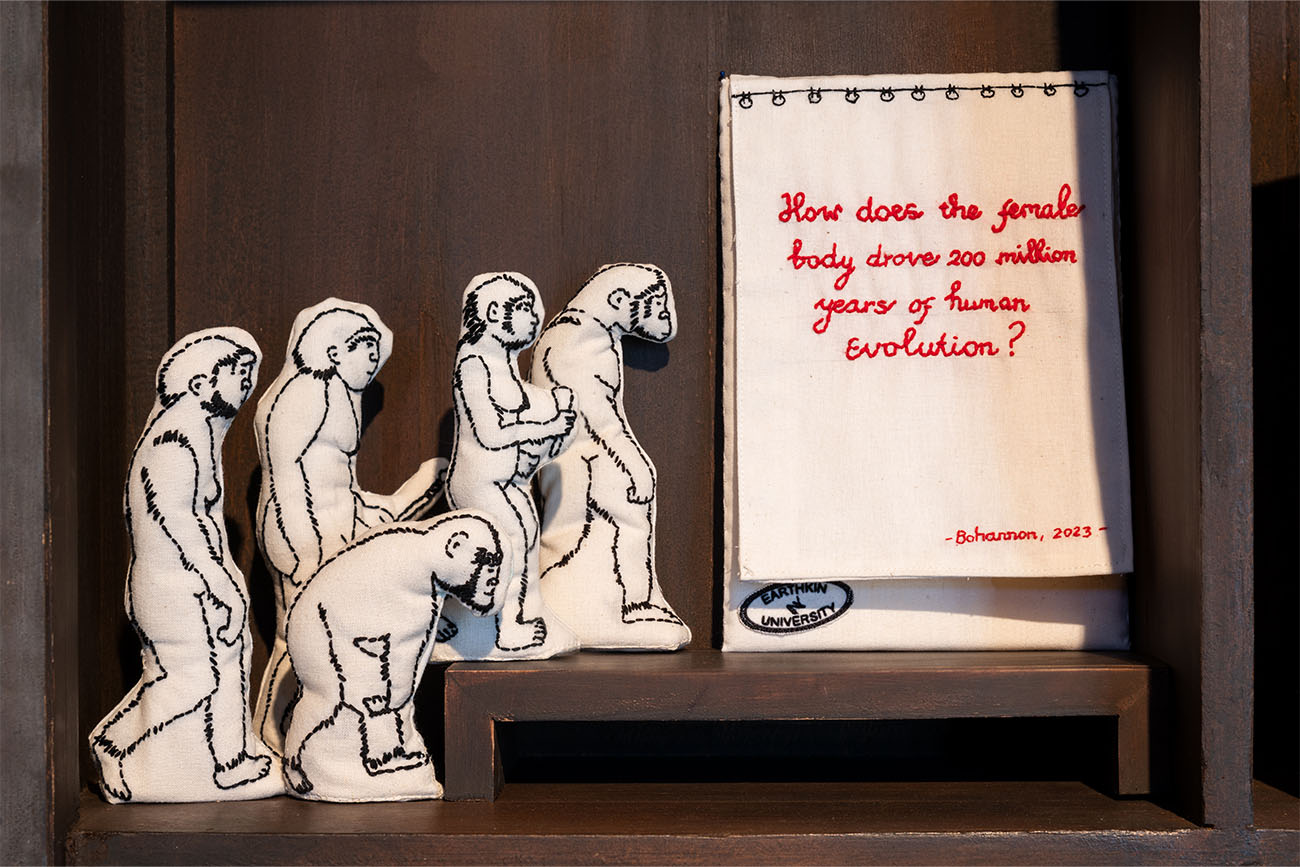 How does the female
body drove 200 million
years of human
Evolution?
- Bohannon, 2023 -
EARTHKIN
UNIVERSITY